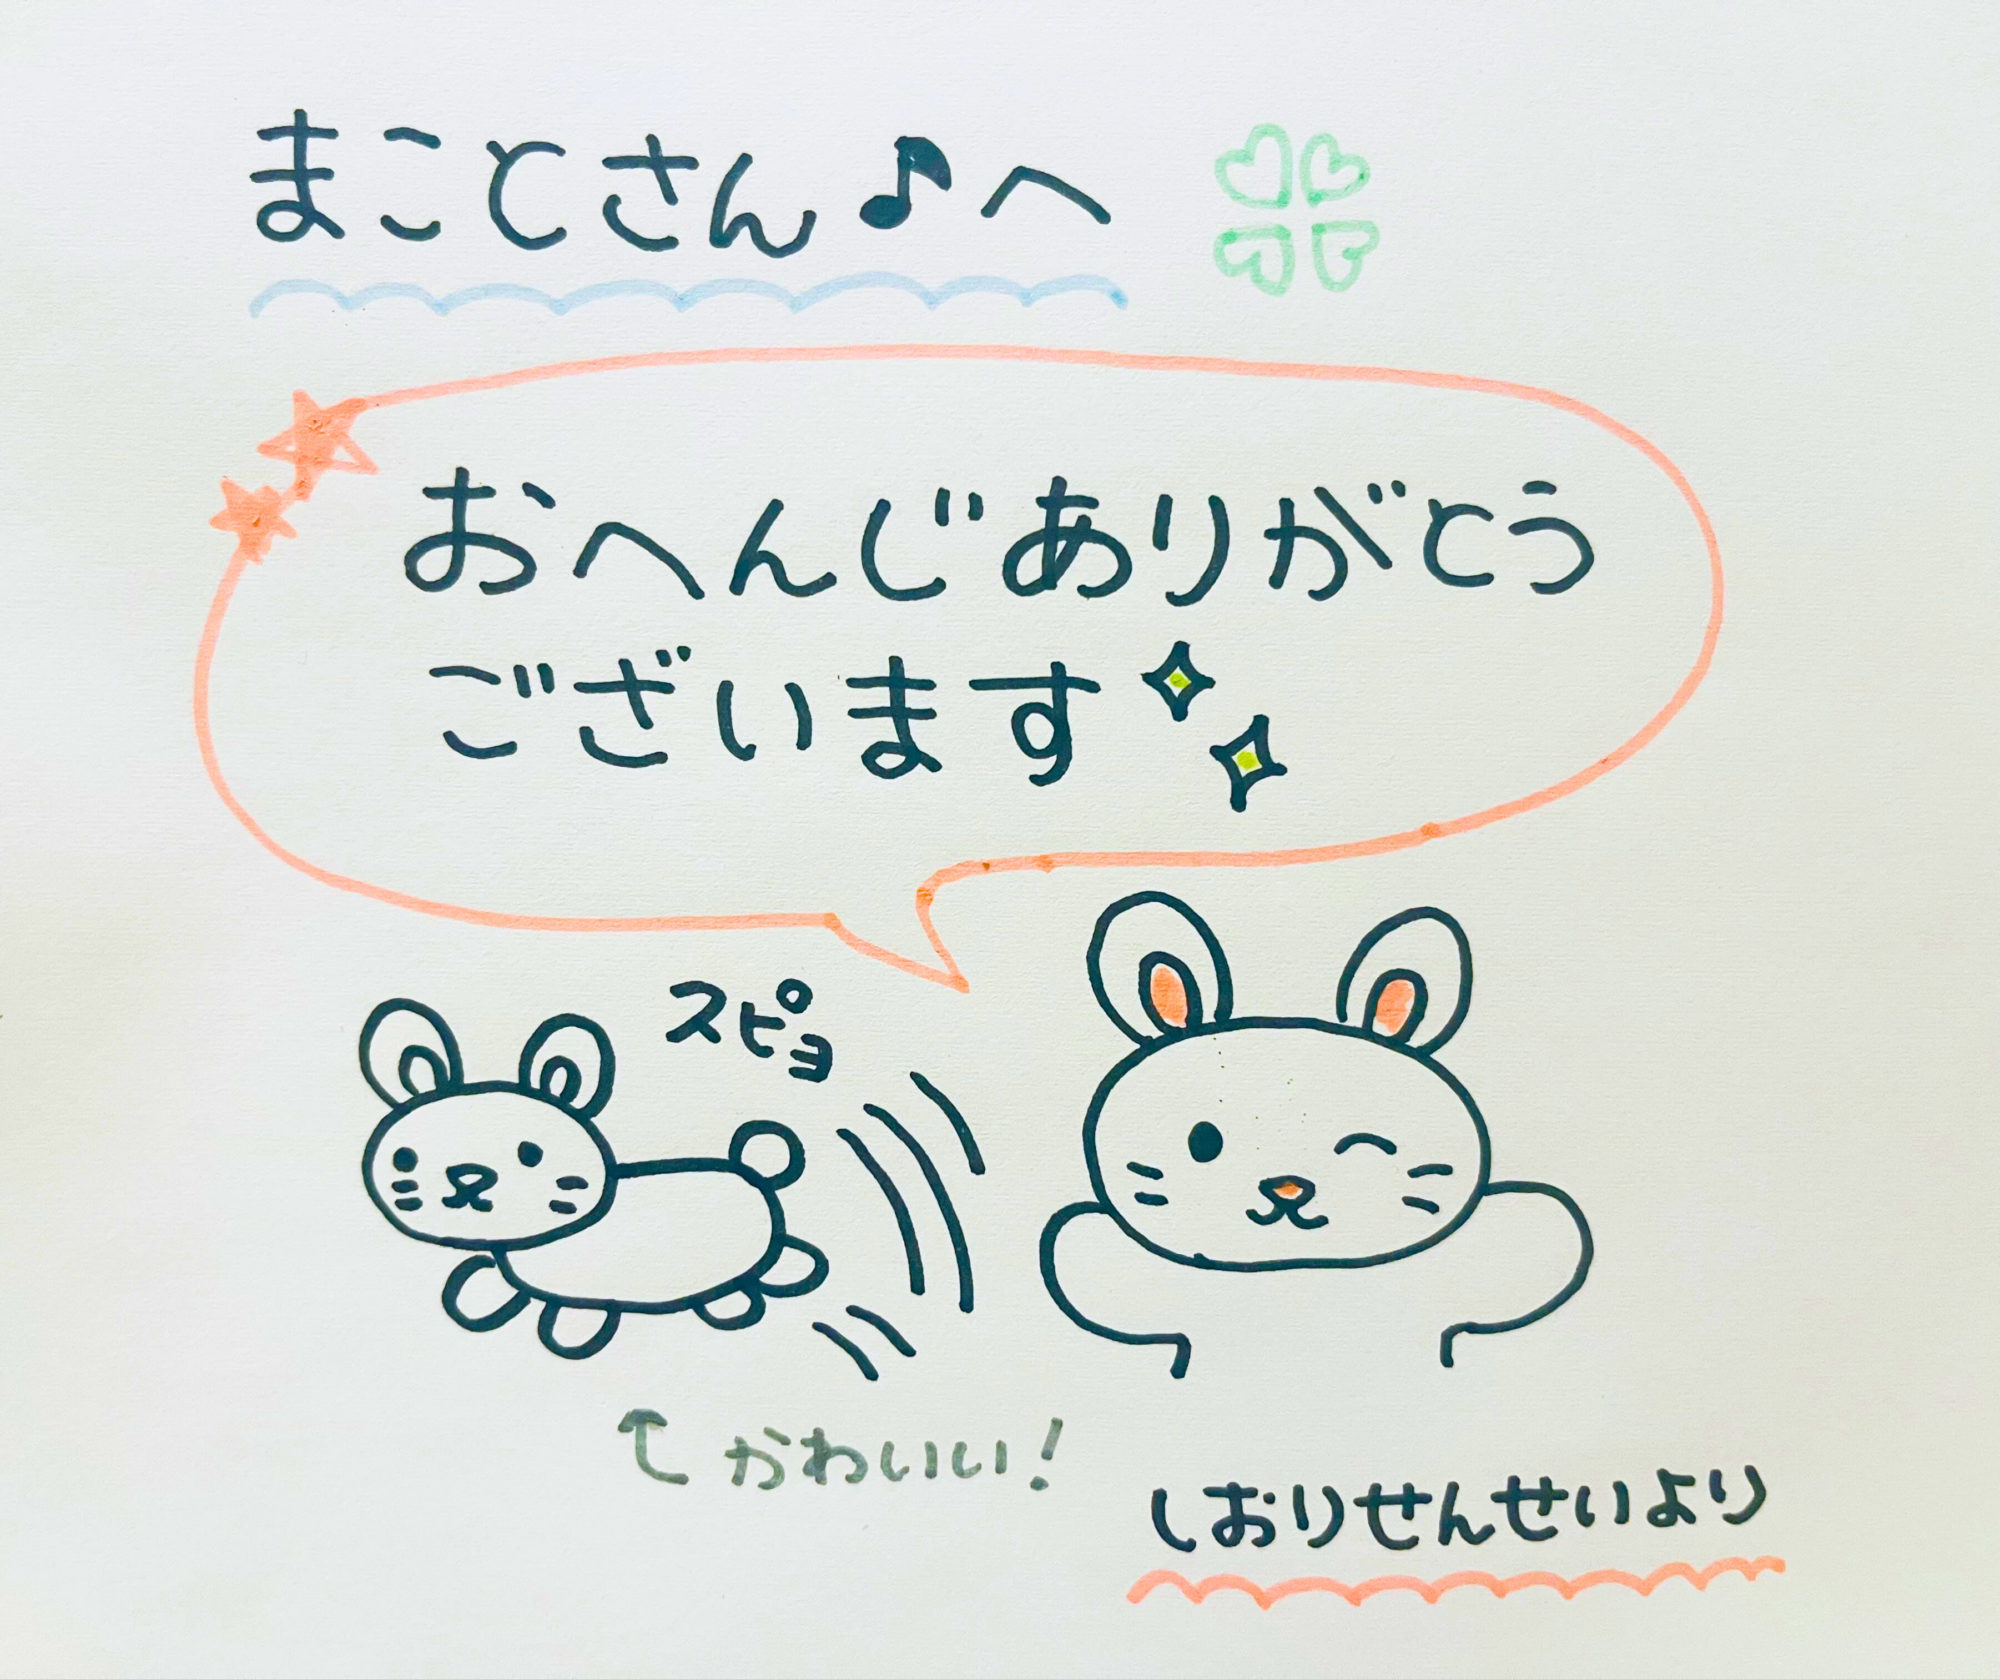 まことさん♪へ
おへんじありがとう
ございます
スピョ
かわいい!
しおりせんせいより